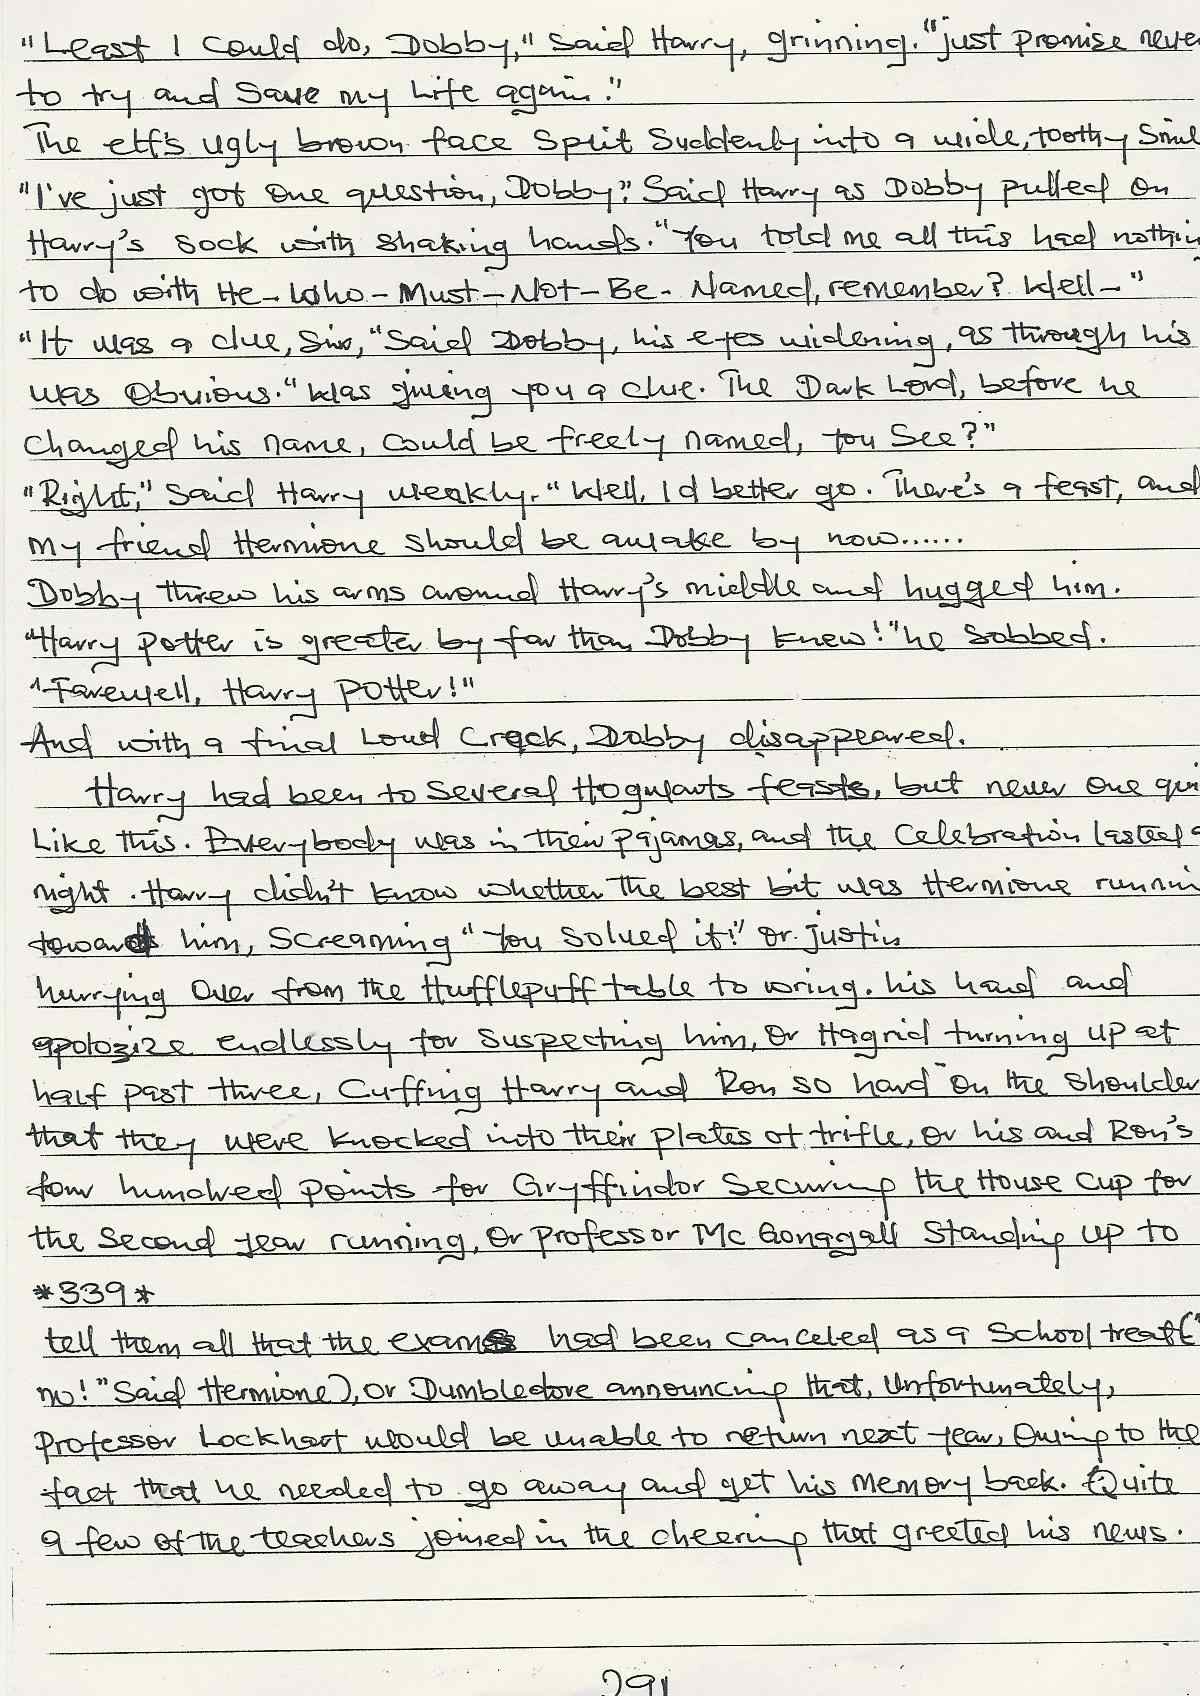 "Least I could do, Dobby," said Harry, grinning. "just promise never
to try and save my life again."
The elf's ugly brown face split suddenly into a wide, toothy smil
"I've just got one question, Dobby," said Harry as Dobby pulled on
Harry's sock with shaking hands. "You told me all this had nothin
to do with He-Who-Must-Not-Be-Named, remember? Well-"
"It was a clue, sir," said Dobby, his eyes widening, as through his
was obvious. "Was giving you a clue. The Dark Lord, before he
changed his name, could be freely named, you see?"
"Right," said Harry weakly. "Well, I'd better go. There's a feast, and
my friend Hermione should be awake by now......
Dobby threw his arms around Harry's middle and hugged him.
"Harry potter is greater by far than Dobby knew!" he sobbed.
"Farewell, Harry potter!"
And with a final loud crack, Dobby disappeared.
Harry had been to several Hogwarts feasts, but never one qui
like this. Everybody was in their pajamas, and the celebration lasted a
night. Harry didn't know whether the best bit was Hermione runnin
toward him, screaming "You solved it!" or justin
hurrying over from the Hufflepuff table to wring his hand and
apologize endlessly for suspecting him, or Hagrid turning up at
half past three, cuffing Harry and Ron so hard on the shoulder
that they were knocked into their plates of trifle, or his and Ron's
four hundred points for Gryffindor securing the House cup for
the second year running, or professor McGonagall standing up to
*339*
tell them all that the exams had been canceled as a school treat("
no!" said Hermione), or Dumbledore announcing that, unfortunately,
professor Lockhart would be unable to return next year, owing to the
fact that he needed to go away and get his memory back. Quite
a few of the teachers joined in the cheering that greeted his news.
291